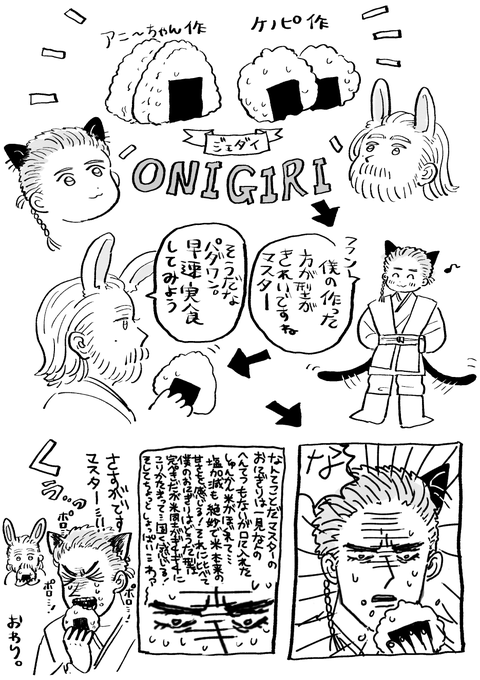 アニ〜ちゃん作
ケノピ作
ジェダイ
ONIGIRI
フフン
僕の作った
方が型が
きれいですね
マスター
♪
そうだな
パダワン。
早速実食
してみよう
な
なんてことだマスターの
おにぎりは一見なんの
へんてつもないが口に入れた
しゅんかん米がほぐれて…
塩加減も絶妙で米本来の
甘さを感じる!それに比べて
僕のおにぎりはどうだ…型は
完ぺきだが米同士がギチギチに
こりかたまって…固く感じる!
そしてちょっとしょっぱいじゃねーか?
くうっ…
さすがです
マスター…!!
ポロ…
ポロ…!
ポロ…!
おわり。